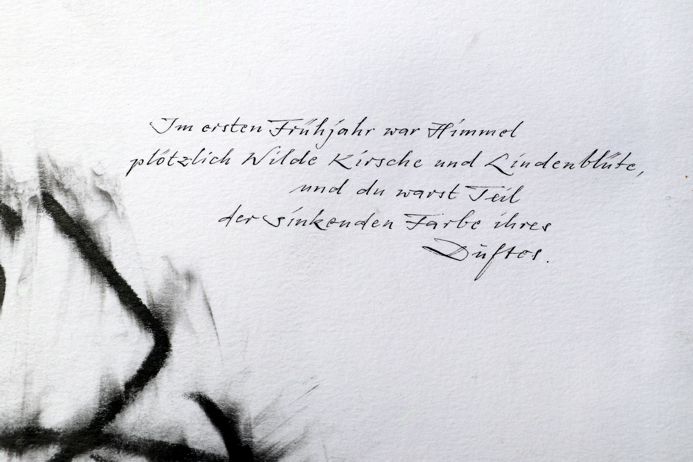 Im ersten Frühjahr war Himmel
plötzlich Wilde Kirsche und Lindenblüte,
und du warst Teil
der sinkenden Farbe ihres
Duftes.